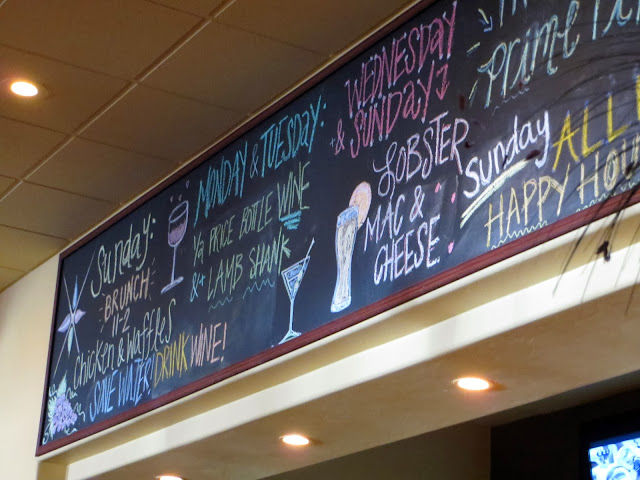 Sunday:
BRUNCH
11-2
Chicken & Waffles
SAVE WATER! DRINK WINE!
MONDAY & TUESDAY:
1/2 PRICE BOTTLE WINE
& LAMB SHANK
WEDNESDAY
& SUNDAY
LOBSTER
MAC &
CHEESE
Prime
Sunday ALL
HAPPY HOU